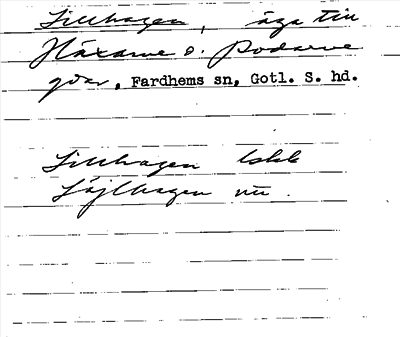 Lillhagen, äga till
Häxarve o. Rodarve
gdar, Fardhems sn, Gotl. S. hd.
Lillhagen lskk
Läjlhagen nu.